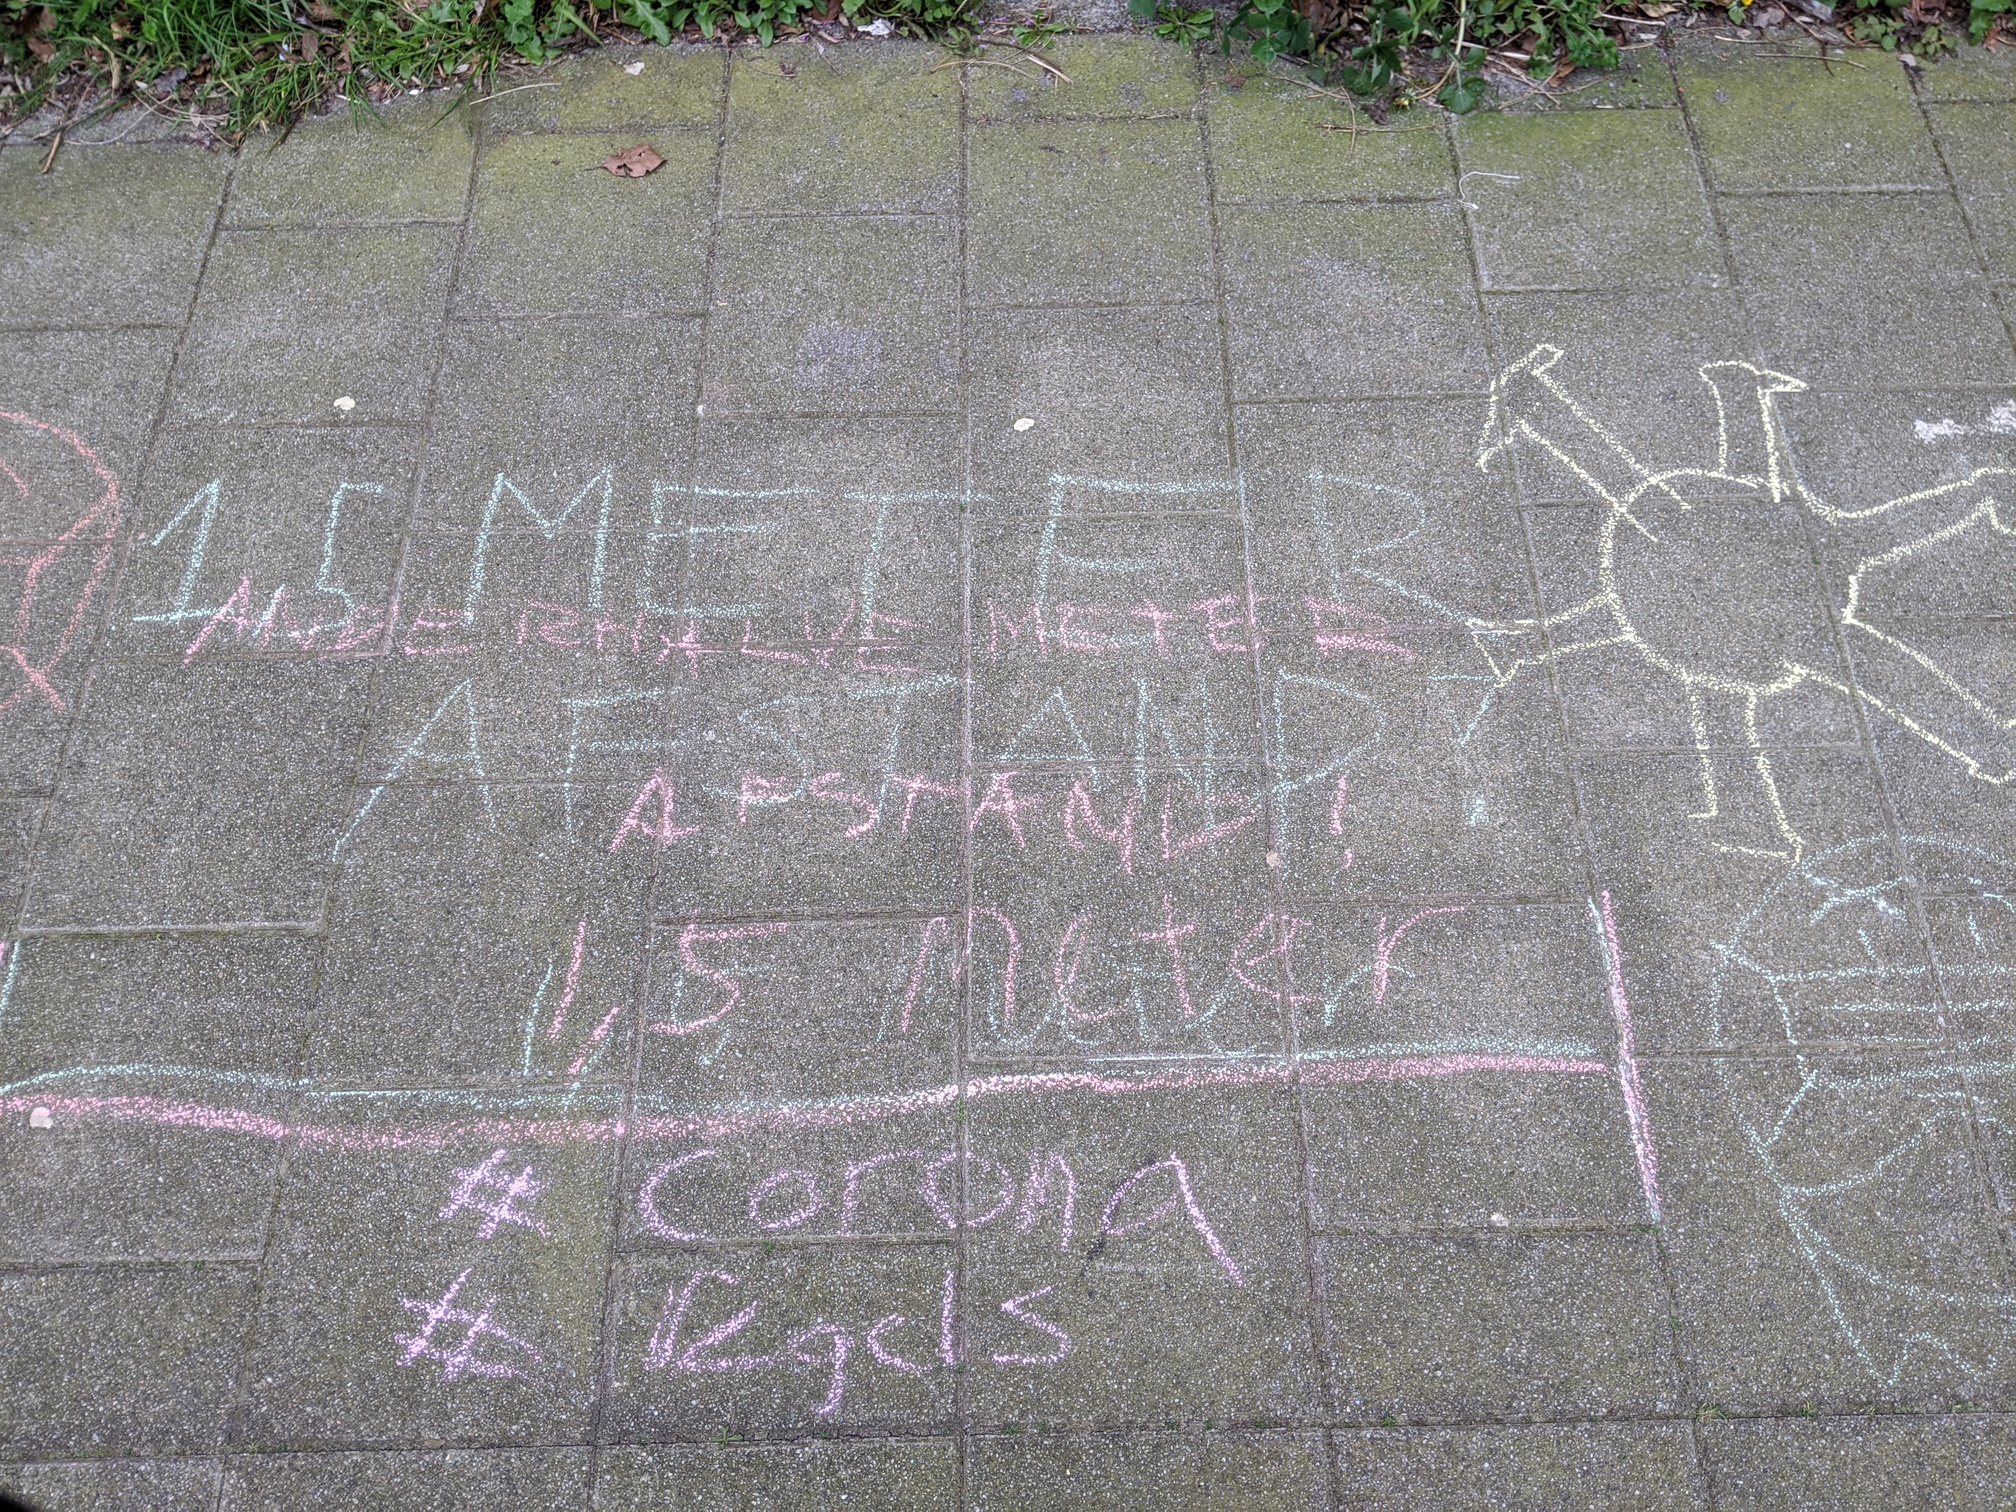 1,5 METER
ANDERHALVE METER
AFSTAND!
AFSTAND!
1,5 meter
# Corona
# Regels